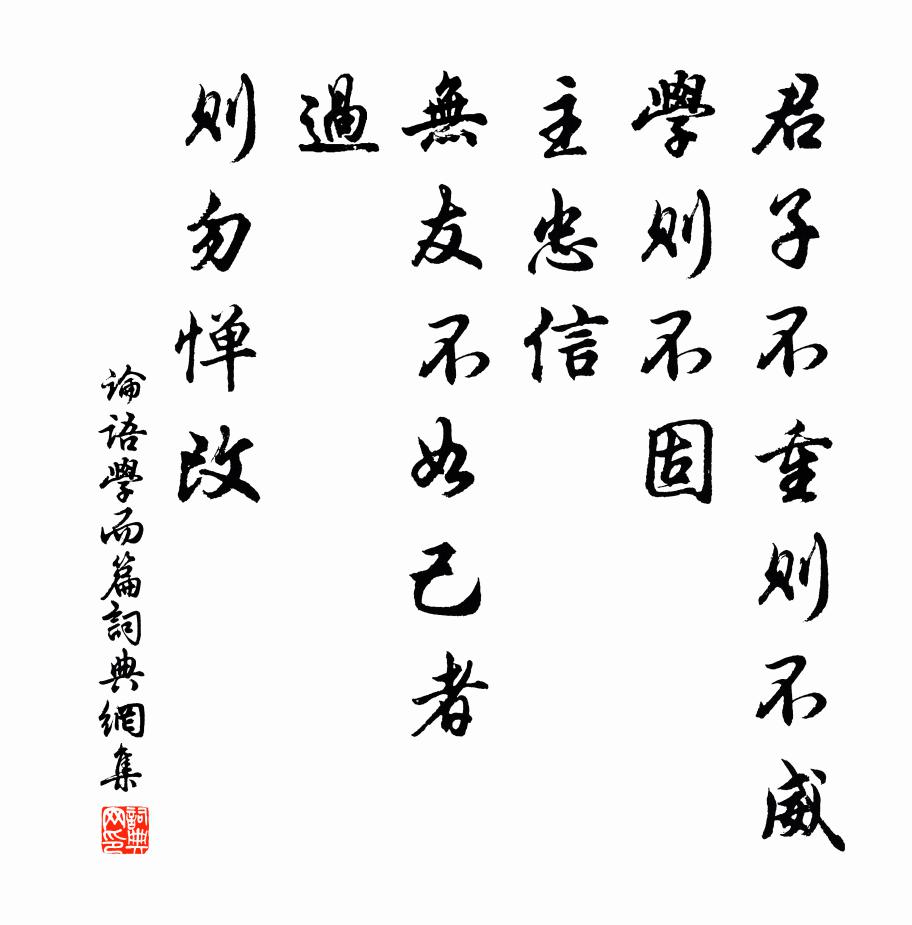 君子不重則不威
學則不固
主忠信
無友不如己者
過
則勿惮改
论语學而篇詞典網集
詞典网印